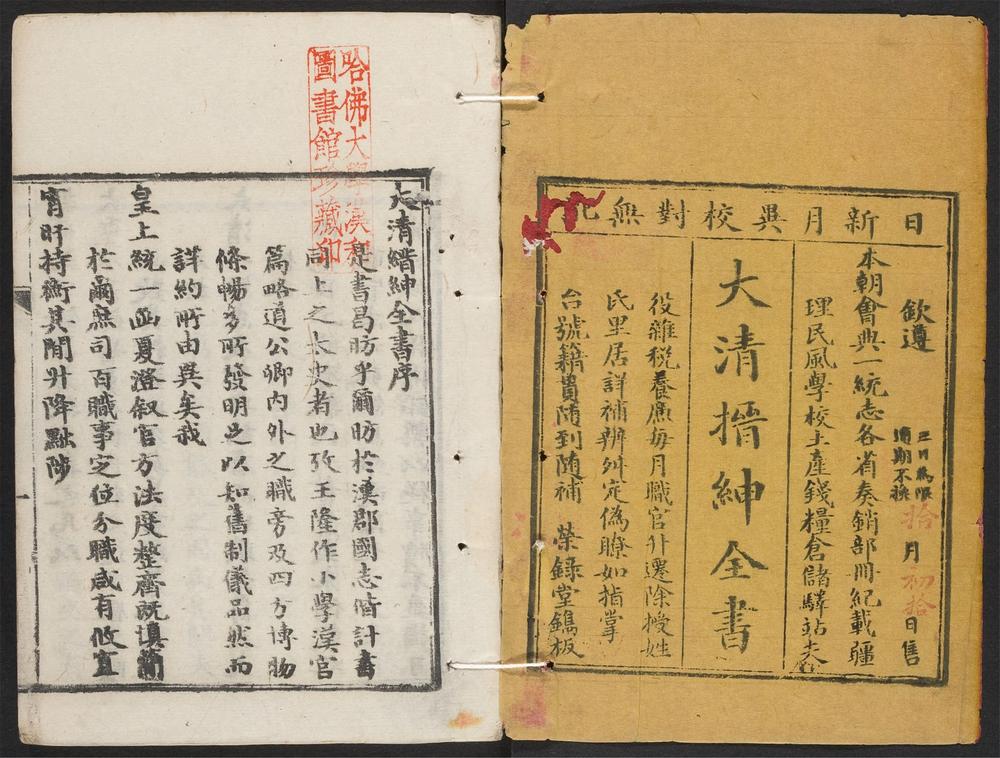 日新月異校對無訛
欽遵
三日為限
逾期不換
拾月初拾日售
本朝會典一統志各省奏銷部冊紀載疆
理民風學校土產錢糧倉儲驛站夫
大清搢紳全書
役雜稅養廉每月職官升遷除授姓
氏里居詳補辦舛定偽瞭如指掌
台號籍貫隨到隨補 榮錄堂鐫板
哈佛大學漢和
圖書館珍藏印
大清縉紳全書序
是書昌昉乎爾昉於漢郡國志偕計書
同上之太史者也攷王隆作小學漢官
篇略道公卿內外之職旁及四方博物
條暢多所發明足以知舊制儀品然而
詳約所由異矣我
皇上統一函夏澄叙官方法度整齊既慎簡
於爾庶司百職事定位分職咸有攸宜
宵旰持衡其間升降黜陟